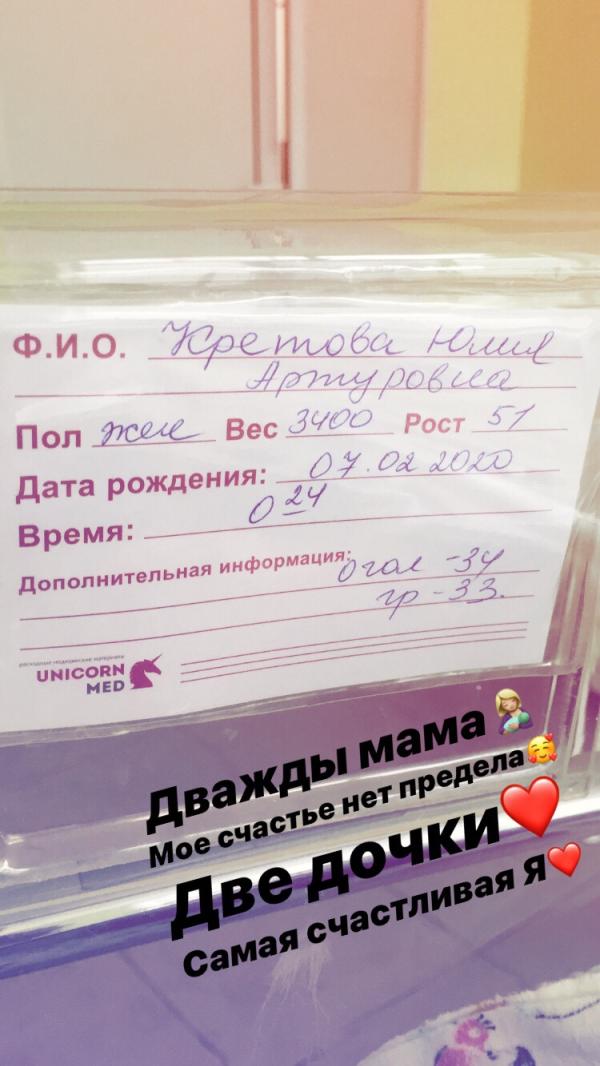 Ф.И.О. Кретова Юлия
Артуровна
Пол жен Вес 3400 Рост 51
Дата рождения: 07.02 2020
Время: 0 24
Дополнительная информация: огол -34
гр - 33.
расходные медицинские материалы
UNICORN
MED
Дважды мама 🤱🏼
Мое счастье нет предела🥰
Две дочки❤️
Самая счастливая Я❤️